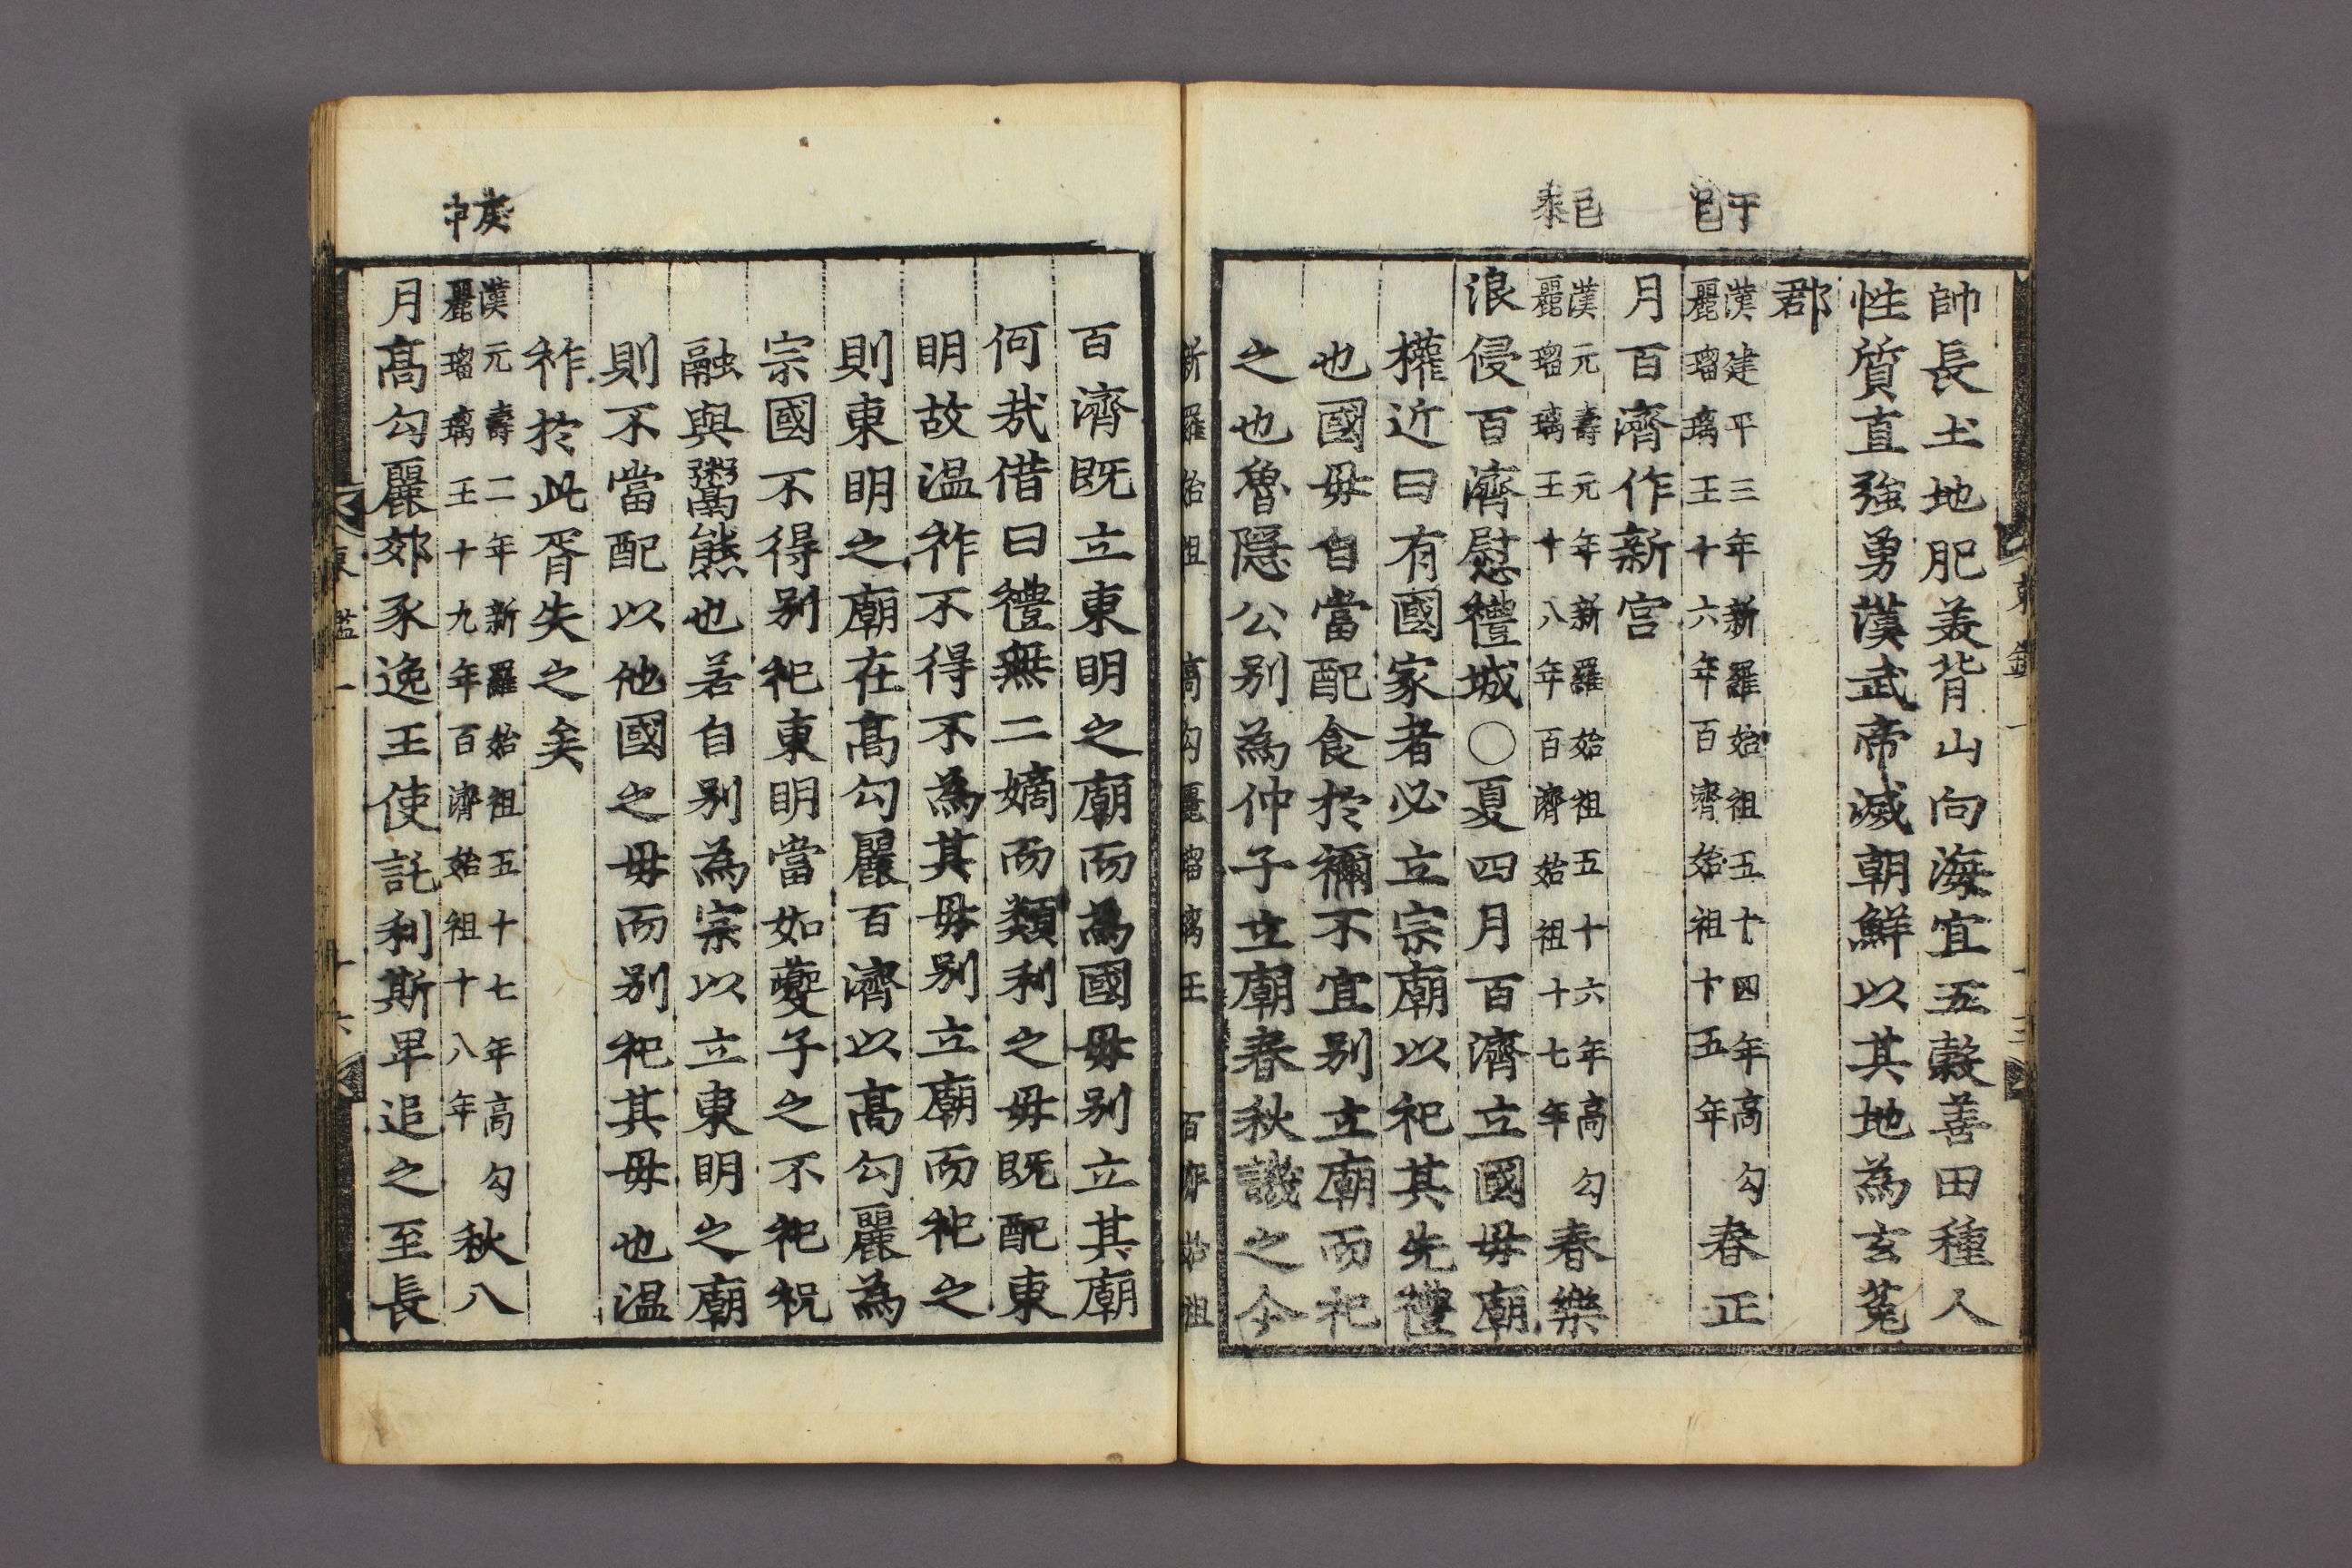 帥長土地肥美背山向海宜五穀善田種人
性質直強勇漢武帝滅朝鮮以其地為玄菟
郡
漢建平三年新羅始祖五十四年高勾
麗瑠璃王十六年百濟始祖十五年
春正
月百濟作新宮
漢元壽元年新羅始祖五十六年高勾
麗瑠璃王十八年百濟始祖十七年
春樂
浪侵百濟慰禮城〇夏四月百濟立國母廟
權近曰有國家者必立宗廟以祀其先禮
也國母自當配食於禰不宜別立廟而祀
之也魯隱公別為仲子立廟春秋譏之今
新羅始祖 高勾麗瑠璃王 百濟始祖
百濟既立東明之廟而為國母別立其廟
何㢤借曰禮無二嫡而類利之母既配東
明故温祚不得不為其母別立廟而祀之
則東明之廟在高勾麗百濟以高勾麗為
宗國不得別祀東明當如夔子之不祀祝
融與鬻熊也若自別為宗以立東明之廟
則不當配以他國之母而別祀其母也温
祚於此胥失之矣
庚
申
漢元壽二年新羅始祖五十七年高勾
麗瑠璃王十九年百濟始祖十八年
秋八
月高勾麗郊豕逸王使託利斯卑追之至長
東鑑一
十六